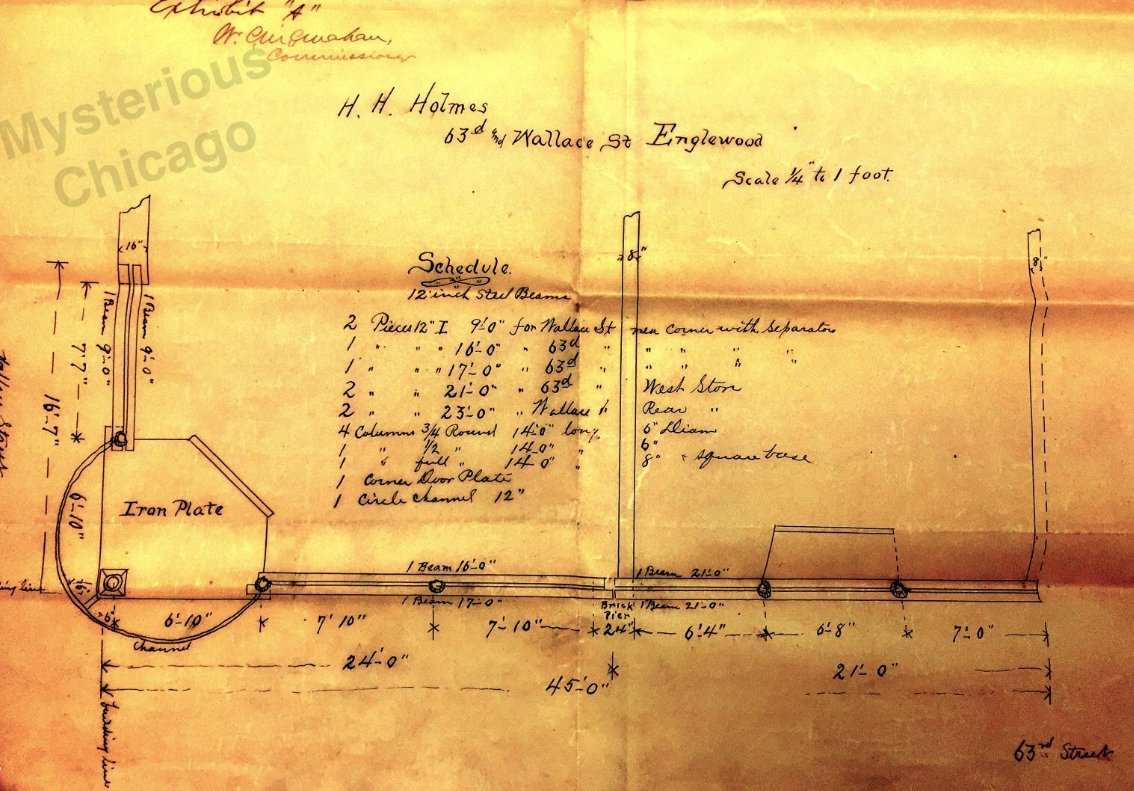 Exhibit "A"
Commissioner
Mysterious
Chicago
H. H. Holmes
63d and Wallace St Englewood
Scale 1/4" to 1 foot.
Schedule.
12 inch Steel Beams
2 Pieces 12" I 9'-0" for Wallace St near corner with Separators
1 " " " 16'-0" " 63d " " " " "
1 " " " 17'-0" " 63d " " " " "
2 " " 21'-0" " 63d " West Store
2 " " 23'-0" " Wallace " Rear "
4 Columns 3/4 Round 14'-0" long 6" Diam
1 " 1/2 " 14'-0" " 6"
1 " full " 14'-0" " 8" & square base
1 Corner Door Plate
1 Circle Channel 12"
16"
8"
8"
1 Beam 9'-0"
1 Beam 9'-0"
7'-7"
16'-7"
Wallace Street
6'-10"
Iron Plate
building line
16"
6"
6'-10"
Channel
1 Beam 16'-0"
1 Beam 17'-0"
1 Beam 21'-0"
1 Beam 21'-0"
Brick
Pier
24"
7'10"
7'-10"
6'4"
6'-8"
7'-0"
24'-0"
21'-0"
45'-0"
building line
63rd Street